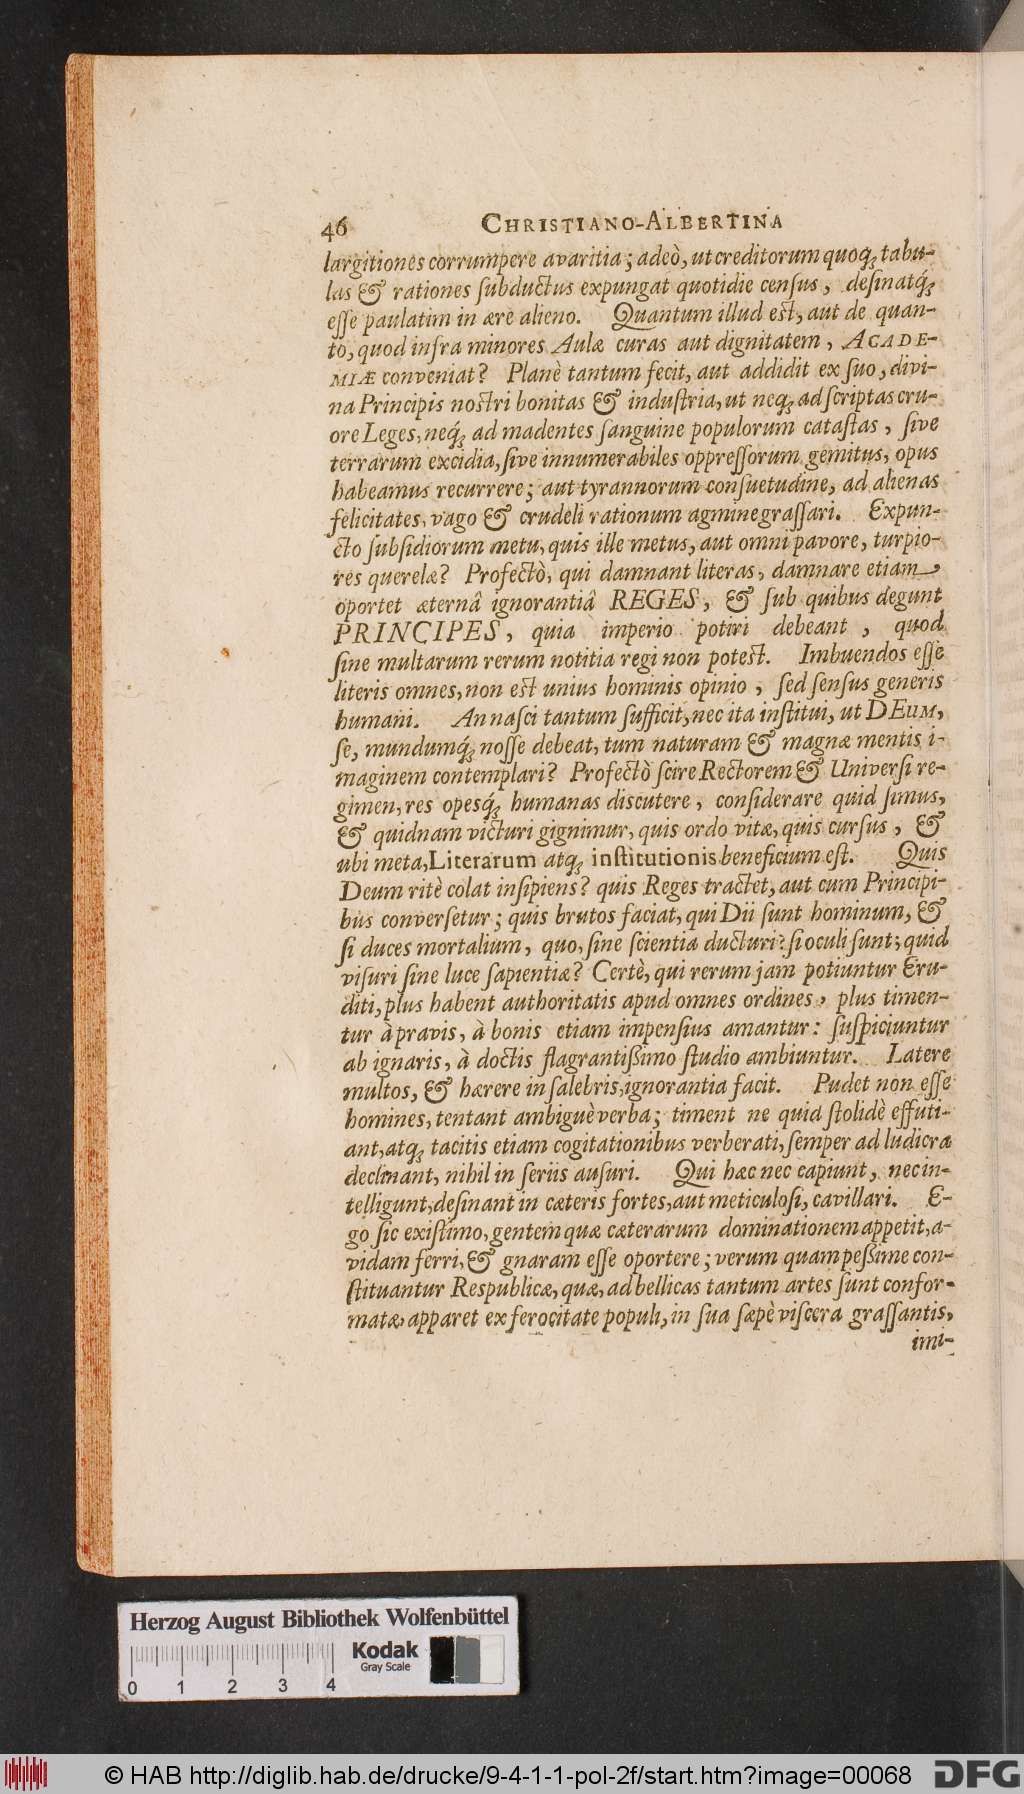 46 CHRISTIANO-ALBERTINA
largitiones corrumpere avaritia; adeò, ut creditorum quoq́; tabu-
las & rationes ſubductus expungat quotidie cenſus, deſinatq́;
eſſe paulatim in ære alieno. Quantum illud est, aut de quan-
to, quod infra minores Aulæ curas aut dignitatem, ACADE-
MIÆ conveniat? Planè tantum fecit, aut addidit ex ſuo, divi-
na Principis nostri bonitas & induſtria, ut neq́; ad ſcriptas cru-
ore Leges, neq́; ad madentes ſanguine populorum cataſtas, ſive
terrarum excidia, ſive innumerabiles oppreſſorum gemitus, opus
habeamus recurrere; aut tyrannorum conſuetudine, ad alienas
felicitates, vago & crudeli rationum agmine graſſari. Expun-
cto ſubſidiorum metu, quis ille metus, aut omni pavore, turpio-
res querelæ? Profectò, qui damnant literas, damnare etiam
oportet æternâ ignorantiâ REGES, & ſub quibus degunt
PRINCIPES, quia imperio potiri debeant, quod
ſine multarum rerum notitia regi non potest. Imbuendos eſſe
literis omnes, non est unius hominis opinio, ſed ſenſus generis
humani. An naſci tantum ſufficit, nec ita inſtitui, ut DEUM,
ſe, mundumq́; noſſe debeat, tum naturam & magnæ mentis i-
maginem contemplari? Profectò ſcire Rectorem & Univerſi re-
gimen, res opesq́; humanas discutere, conſiderare quid ſimus,
& quidnam victuri gignimur, quis ordo vitæ, quis curſus, &
ubi meta, Literarum atq́; inſtitutionis beneficium eſt. Quis
Deum ritè colat inſipiens? quis Reges tractet, aut cum Principi-
bus converſetur; quis brutos faciat, qui Dii ſunt hominum, &
ſi duces mortalium, quo, ſine ſcientia ducturi? ſi oculi ſunt; quid
viſuri ſine luce ſapientiæ? Certè, qui rerum jam potiuntur Eru-
diti, plus habent authoritatis apud omnes ordines, plus timen-
tur à pravis, à bonis etiam impenſius amantur: ſuſpiciuntur
ab ignaris, à doctis flagrantißimo ſtudio ambiuntur. Latere
multos, & hærere in ſalebris, ignorantia facit. Pudet non eſſe
homines, tentant ambiguè verba; timent ne quid ſtolidè effuti-
ant, atq́; tacitis etiam cogitationibus verberati, ſemper ad ludicra
declinant, nihil in ſeriis auſuri. Qui hæc nec capiunt, nec in-
telligunt, deſinant in cæteris fortes, aut meticuloſi, cavillari. E-
go ſic exiſtimo, gentem quæ cæterarum dominationem appetit, a-
vidam ferri, & gnaram eſſe oportere; verum quam peßime con-
ſtituantur Respublicæ, quæ, ad bellicas tantum artes ſunt confor-
matæ, apparet ex ferocitate populi, in ſua ſæpè viſcera graſſantis,
imi-
Herzog August Bibliothek Wolfenbüttel
Kodak
Gray Scale
0 1 2 3 4
© HAB http://diglib.hab.de/drucke/9-4-1-1-pol-2f/start.htm?image=00068
DFG